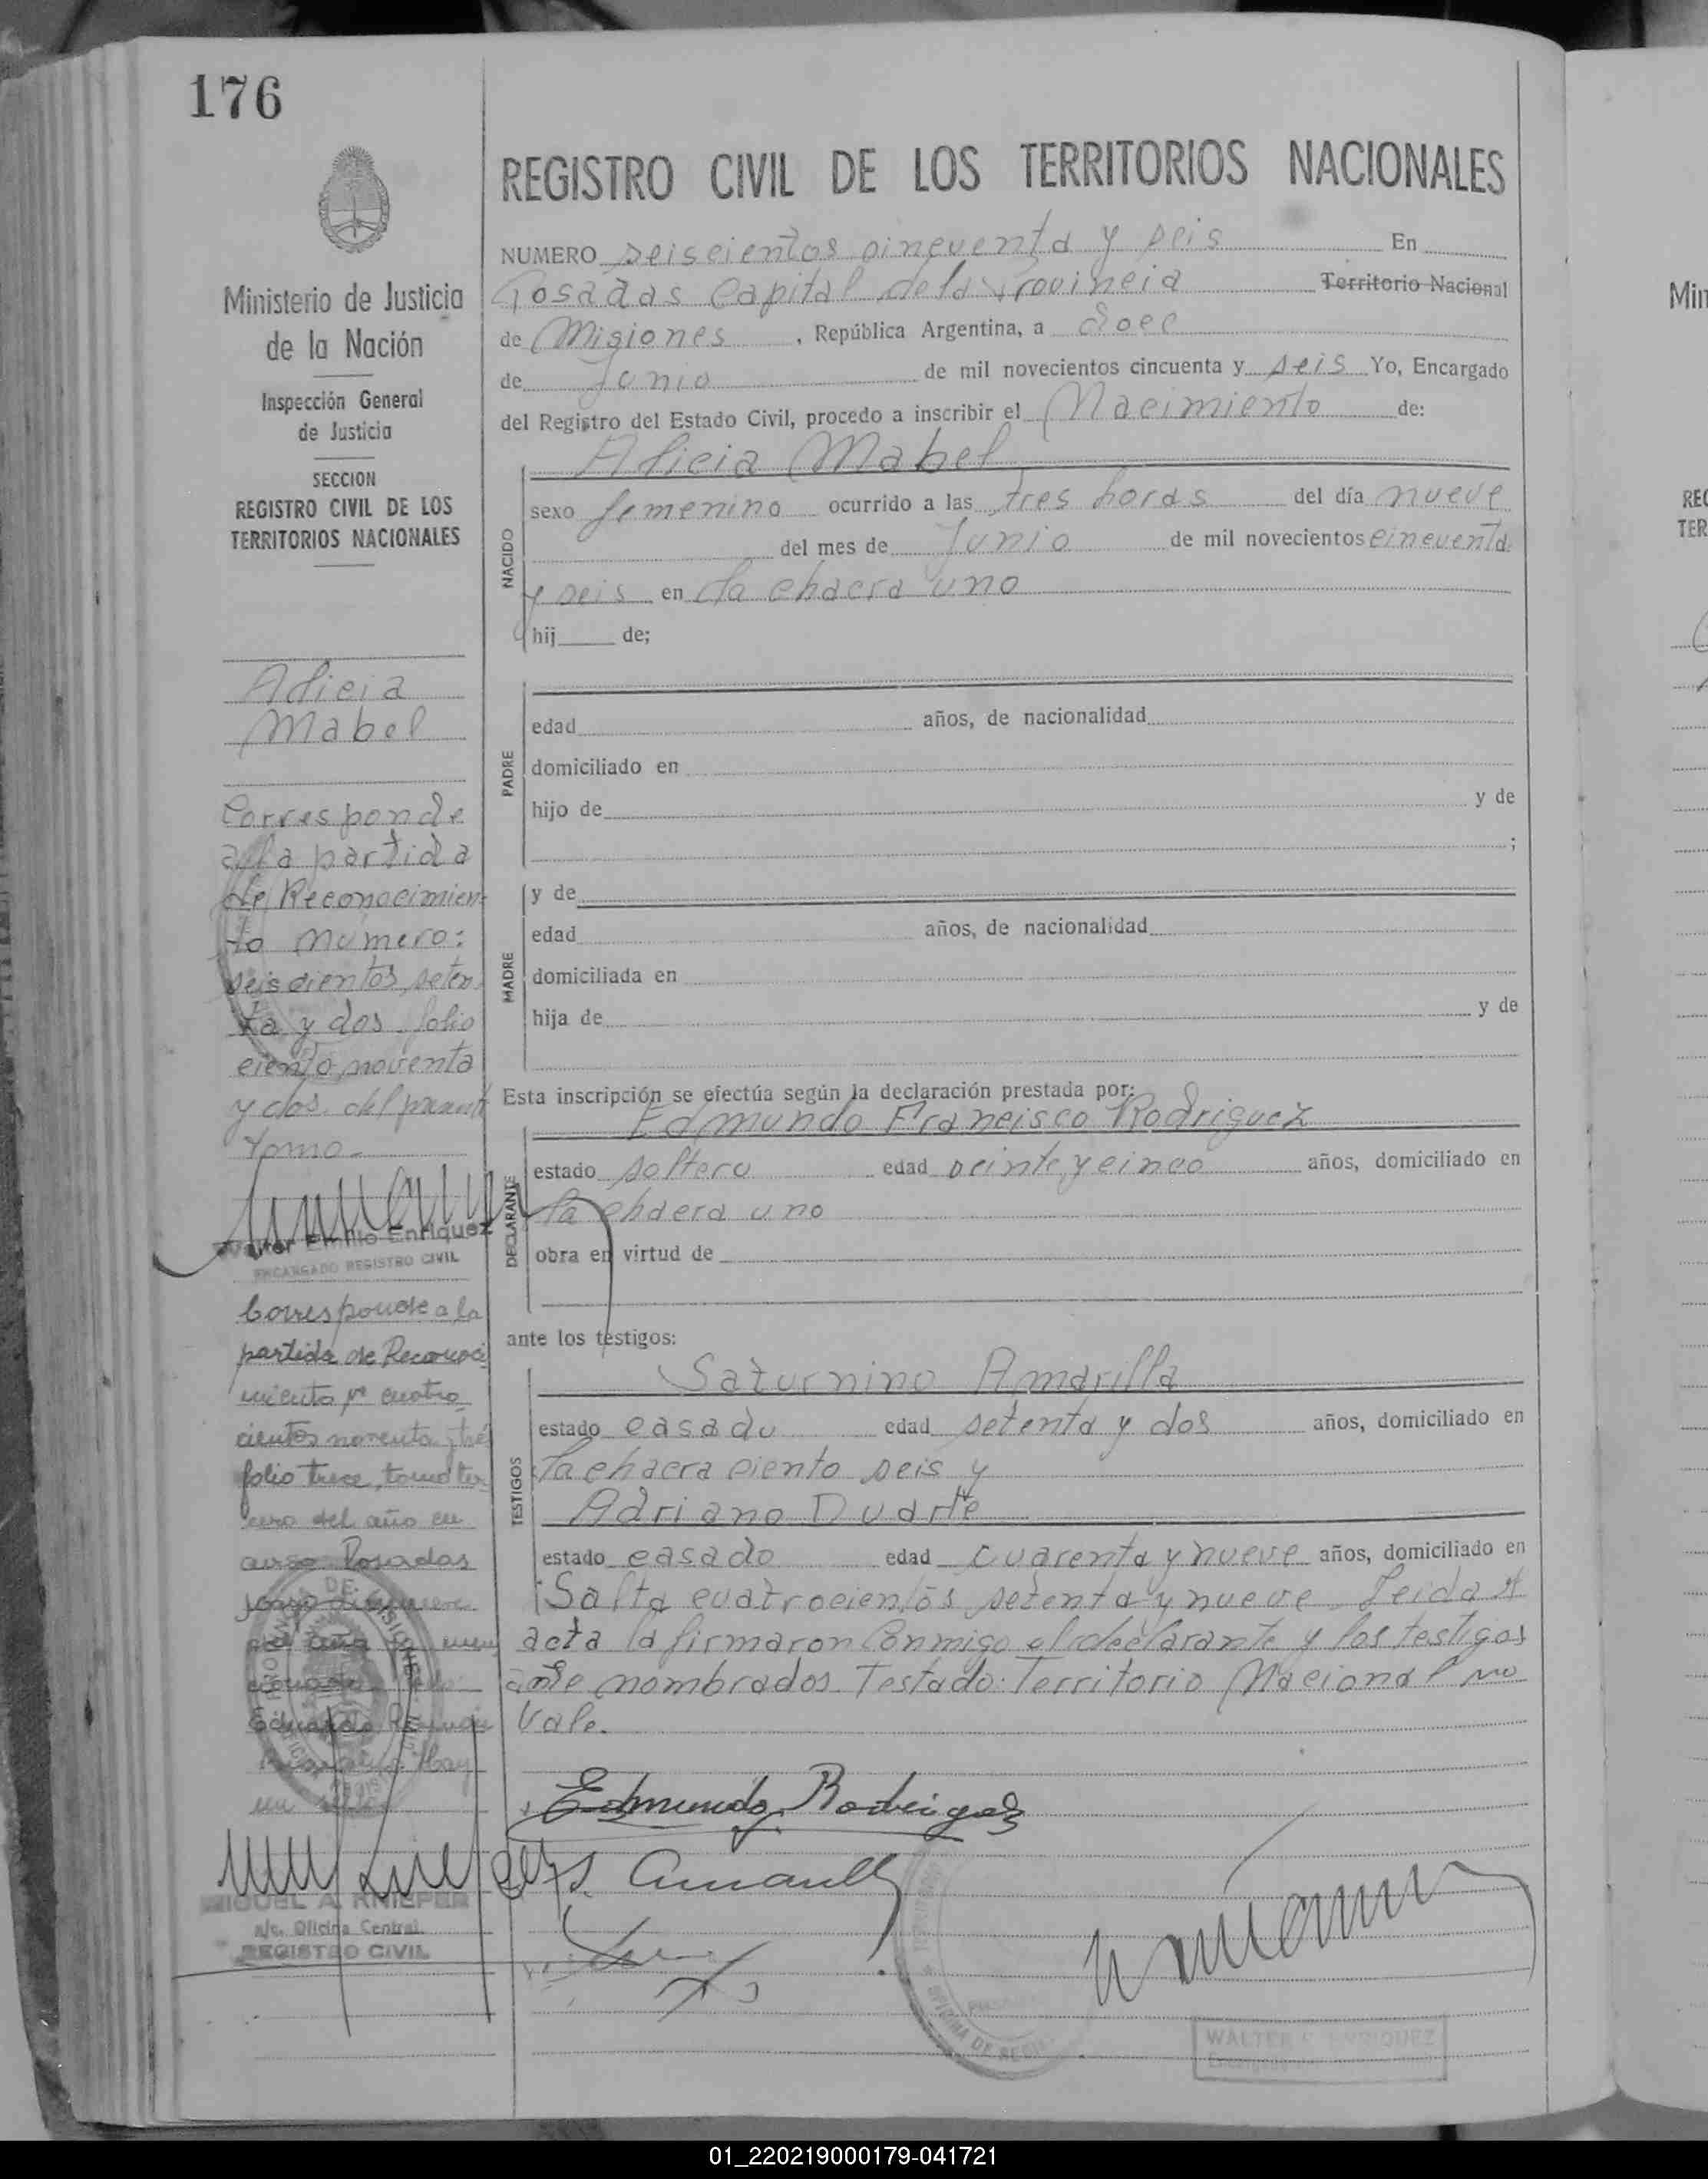 176
REGISTRO CIVIL DE LOS TERRITORIOS NACIONALES
NUMERO seiscientos cincuenta y seis En
Posadas Capital de la Provincia Territorio Nacional
de Misiones, República Argentina, a doce
de Junio de mil novecientos cincuenta y seis Yo, Encargado
del Registro del Estado Civil, procedo a inscribir el Nacimiento de:
Alicia Mabel
NACIDO
sexo femenino ocurrido a las tres horas del día nueve
del mes de Junio de mil novecientos cincuenta
y seis en la chacra uno
hij de;
PADRE
edad años, de nacionalidad
domiciliado en
hijo de y de
;
MADRE
y de
edad años, de nacionalidad
domiciliada en
hija de y de
Esta inscripción se efectúa según la declaración prestada por:
Edmundo Francisco Rodriguez
DECLARANTE
estado soltero edad veinte y cinco años, domiciliado en
la chacra uno
obra en virtud de
ante los testigos:
Saturnino Amarilla
TESTIGOS
estado casado edad setenta y dos años, domiciliado en
la chacra ciento seis y
Adriano Duarte
estado casado edad cuarenta y nueve años, domiciliado en
Salta cuatrocientos setenta y nueve. Leida el
acta la firmaron conmigo el declarante y los testigos
ante nombrados. Testado: Territorio Nacional no
Vale.
Edmundo Rodriguez
WALTER E. ENRIQUEZ
Ministerio de Justicia
de la Nación
Inspección General
de Justicia
SECCION
REGISTRO CIVIL DE LOS
TERRITORIOS NACIONALES
Alicia
Mabel
Corresponde
a la partida
de Reconocimien-
to número:
seiscientos seten-
ta y dos folio
ciento noventa
y dos del present
Tomo.
Walter Emilio Enriquez
ENCARGADO REGISTRO CIVIL
Corresponde a la
partida de Reconoci
miento nº cuatro-
cientos noventa y tres
folio trece, tomo ter
cero del año en
curso. Posadas
Eduardo
Hay
un sello
MIGUEL A. KNIEPER
a/c. Oficina Central
REGISTRO CIVIL
Min
REG
TER
01_220219000179-041721